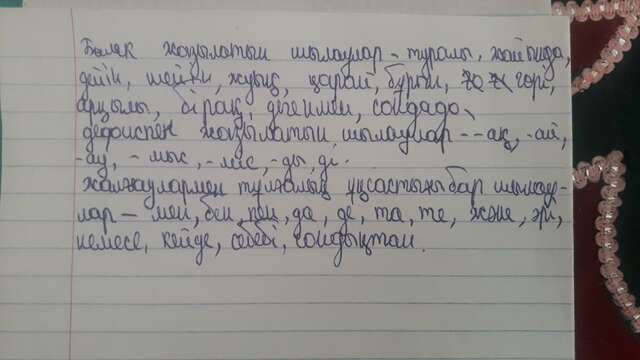 Бөлек жазылатын шылаулар - туралы, жайында,
дейін, шейін, жуық, қарай, бұрын, гөрі,
арқылы, бірақ, дегенмен, сондада,
дефиспен жазылатын шылаулар - -ақ, -ай,
-ау, -мыс, -міс, -ды, ді.
жалғаулармен тұлғалық ұқсастығы бар шылау-
лар - мен, бен, пен, да, де, та, те, және, әрі,
немесе, кейде, себебі, сондықтан.